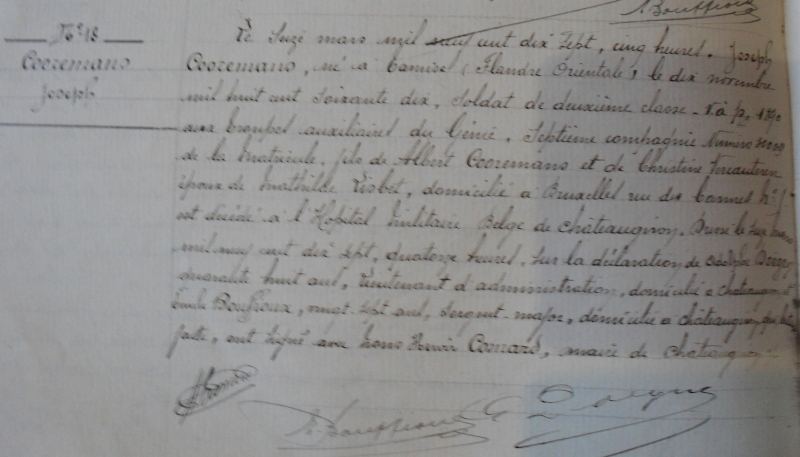 A. Bouffioux
N° 18
Cooremans
Joseph
Le Suze mars mil neuf cent dix sept, cinq heures, Joseph
Cooremans, né à Tamise (Flandre Orientale) le dix novembre
mil huit cent soixante dix, Soldat de deuxième classe
aux troupes auxiliaires du Génie, Septième compagnie Numéro
de la matricule, fils de Albert Cooremans et de Christine Vercauteren
époux de Mathilde Lisbet, domicilié à Bruxelles rue des
est décédé à l'Hopital Militaire Belge de Châteaugiron. Dressé le
mil neuf cent dix sept, quatorze heures, sur la déclaration de
quarante huit ans, Lieutenant d'administration, domicilié à Châteaugiron et
Emile Bouffioux, vingt sept ans, Sergent-major, domicilié à Châteaugiron, qui
faite, ont signé avec nous Henri Cornard, maire de Châteaugiron
A. Bouffioux